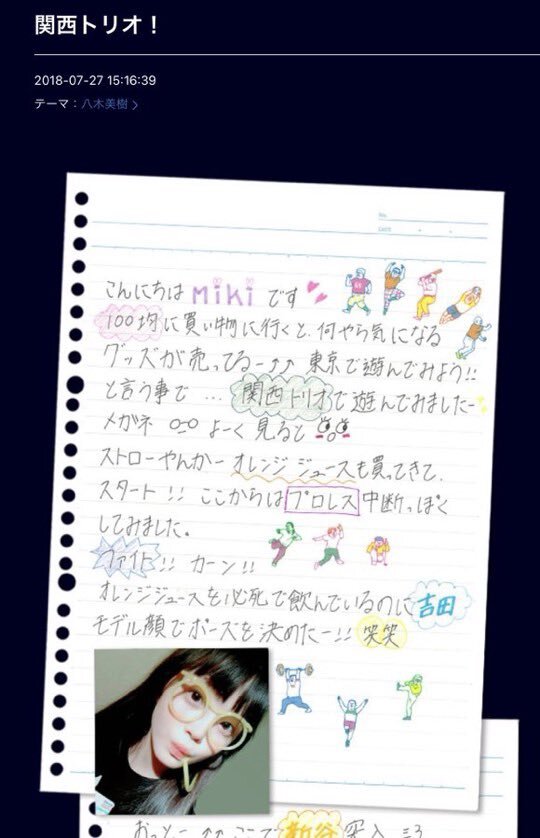 関西トリオ！
2018-07-27 15:16:39
テーマ：八木美樹 >
No.
DATE
こんにちは Miki です
100均に買い物に行くと、何やら気になる
グッズが売ってるー↑↑ 東京で遊んでみよう!!
と言う事で … 関西トリオで遊んでみましたー
メガネ よーく見ると
ストローやんかー オレンジジュースも買ってきて、
スタート!! ここからはプロレス中断っぽく
してみました。
ファイト!! カーン!!
オレンジジュースを必死で飲んでいるのに吉田
モデル顔でポーズを決めたー!! 笑笑
おっとー ↑↑ ここで新谷突入